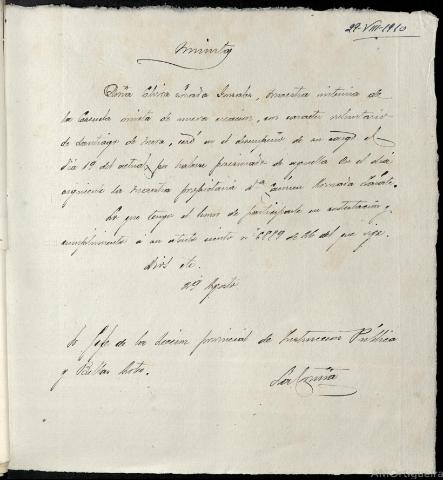 29-VIII-1910
Minuta
Doña Elvira Losada, Maestra interina de
la Escuela mixta de nueva creacion, con caracter voluntario
de Santiago de Mera, cesó en el desempeño de su cargo el
dia 19 del actual, por haberse posesionado de aquella en el dia
siguiente la Maestra propietaria Dª Carmen
Lo que tengo el honor de participarle en contestación y
cumplimiento a su atento oficio nº de 26 del que rige.
Dios etc.
29 Agosto
Sr Jefe de la Seccion provincial de Instruccion Pública
y Bellas Artes.
La Coruña
AMOrtigueira